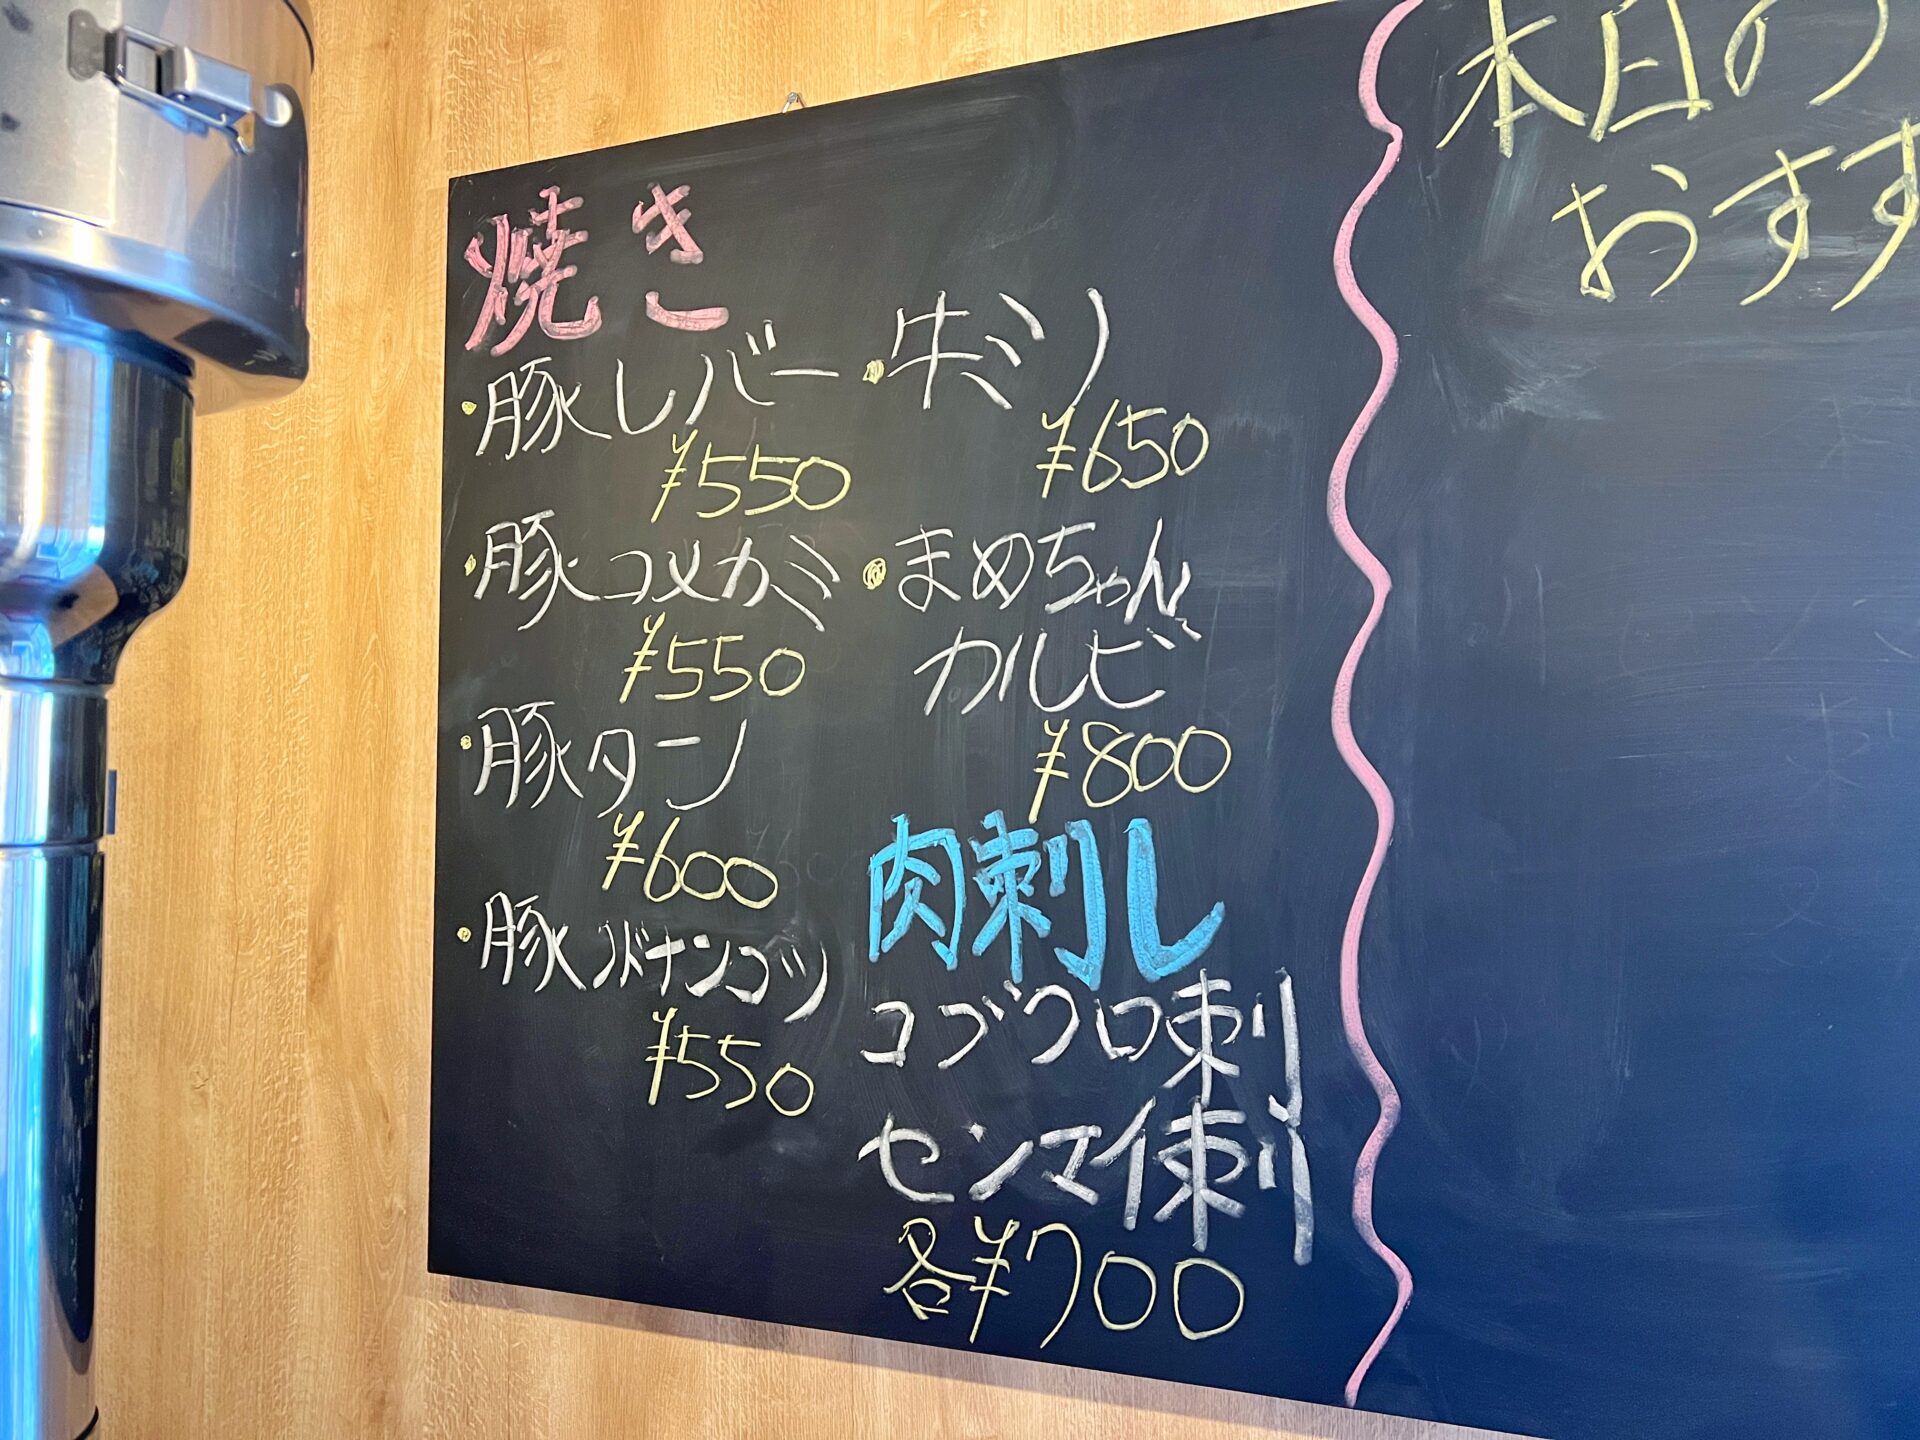 焼き
・豚レバー
¥550
・豚コメカミ
¥550
・豚タン
¥600
・豚ノドナンコツ
¥550
・牛ミノ
¥650
・まめちゃん
カルビ
¥800
肉刺し
コブクロ刺
センマイ刺
各¥700
本日の
おすす